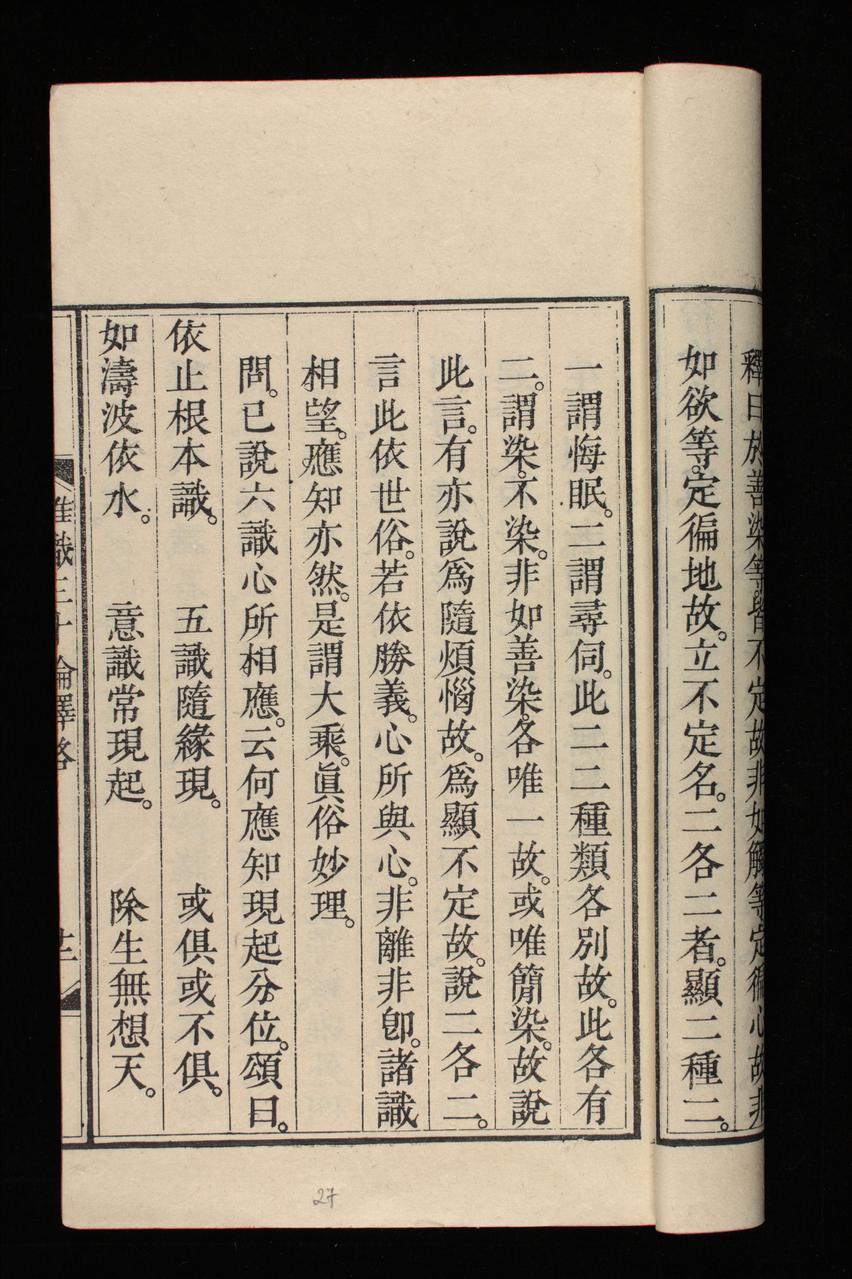 釋曰於善染等皆不定故非如觸等定徧心故非
如欲等定徧地故。立不定名。二各二者。顯二種二。
一謂悔眠。二謂尋伺。此二二種類各別故。此各有
二。謂染。不染。非如善染。各唯一故。或唯簡染。故說
此言。有亦說爲隨煩惱故。爲顯不定故。說二各二。
言此依世俗。若依勝義。心所與心。非離非卽。諸識
相望。應知亦然。是謂大乘。眞俗妙理。
問。已說六識心所相應。云何應知現起分位。頌曰。
依止根本識。 五識隨緣現。 或俱或不俱。
如濤波依水。 意識常現起。 除生無想天。
唯識三十論釋略 十二
27